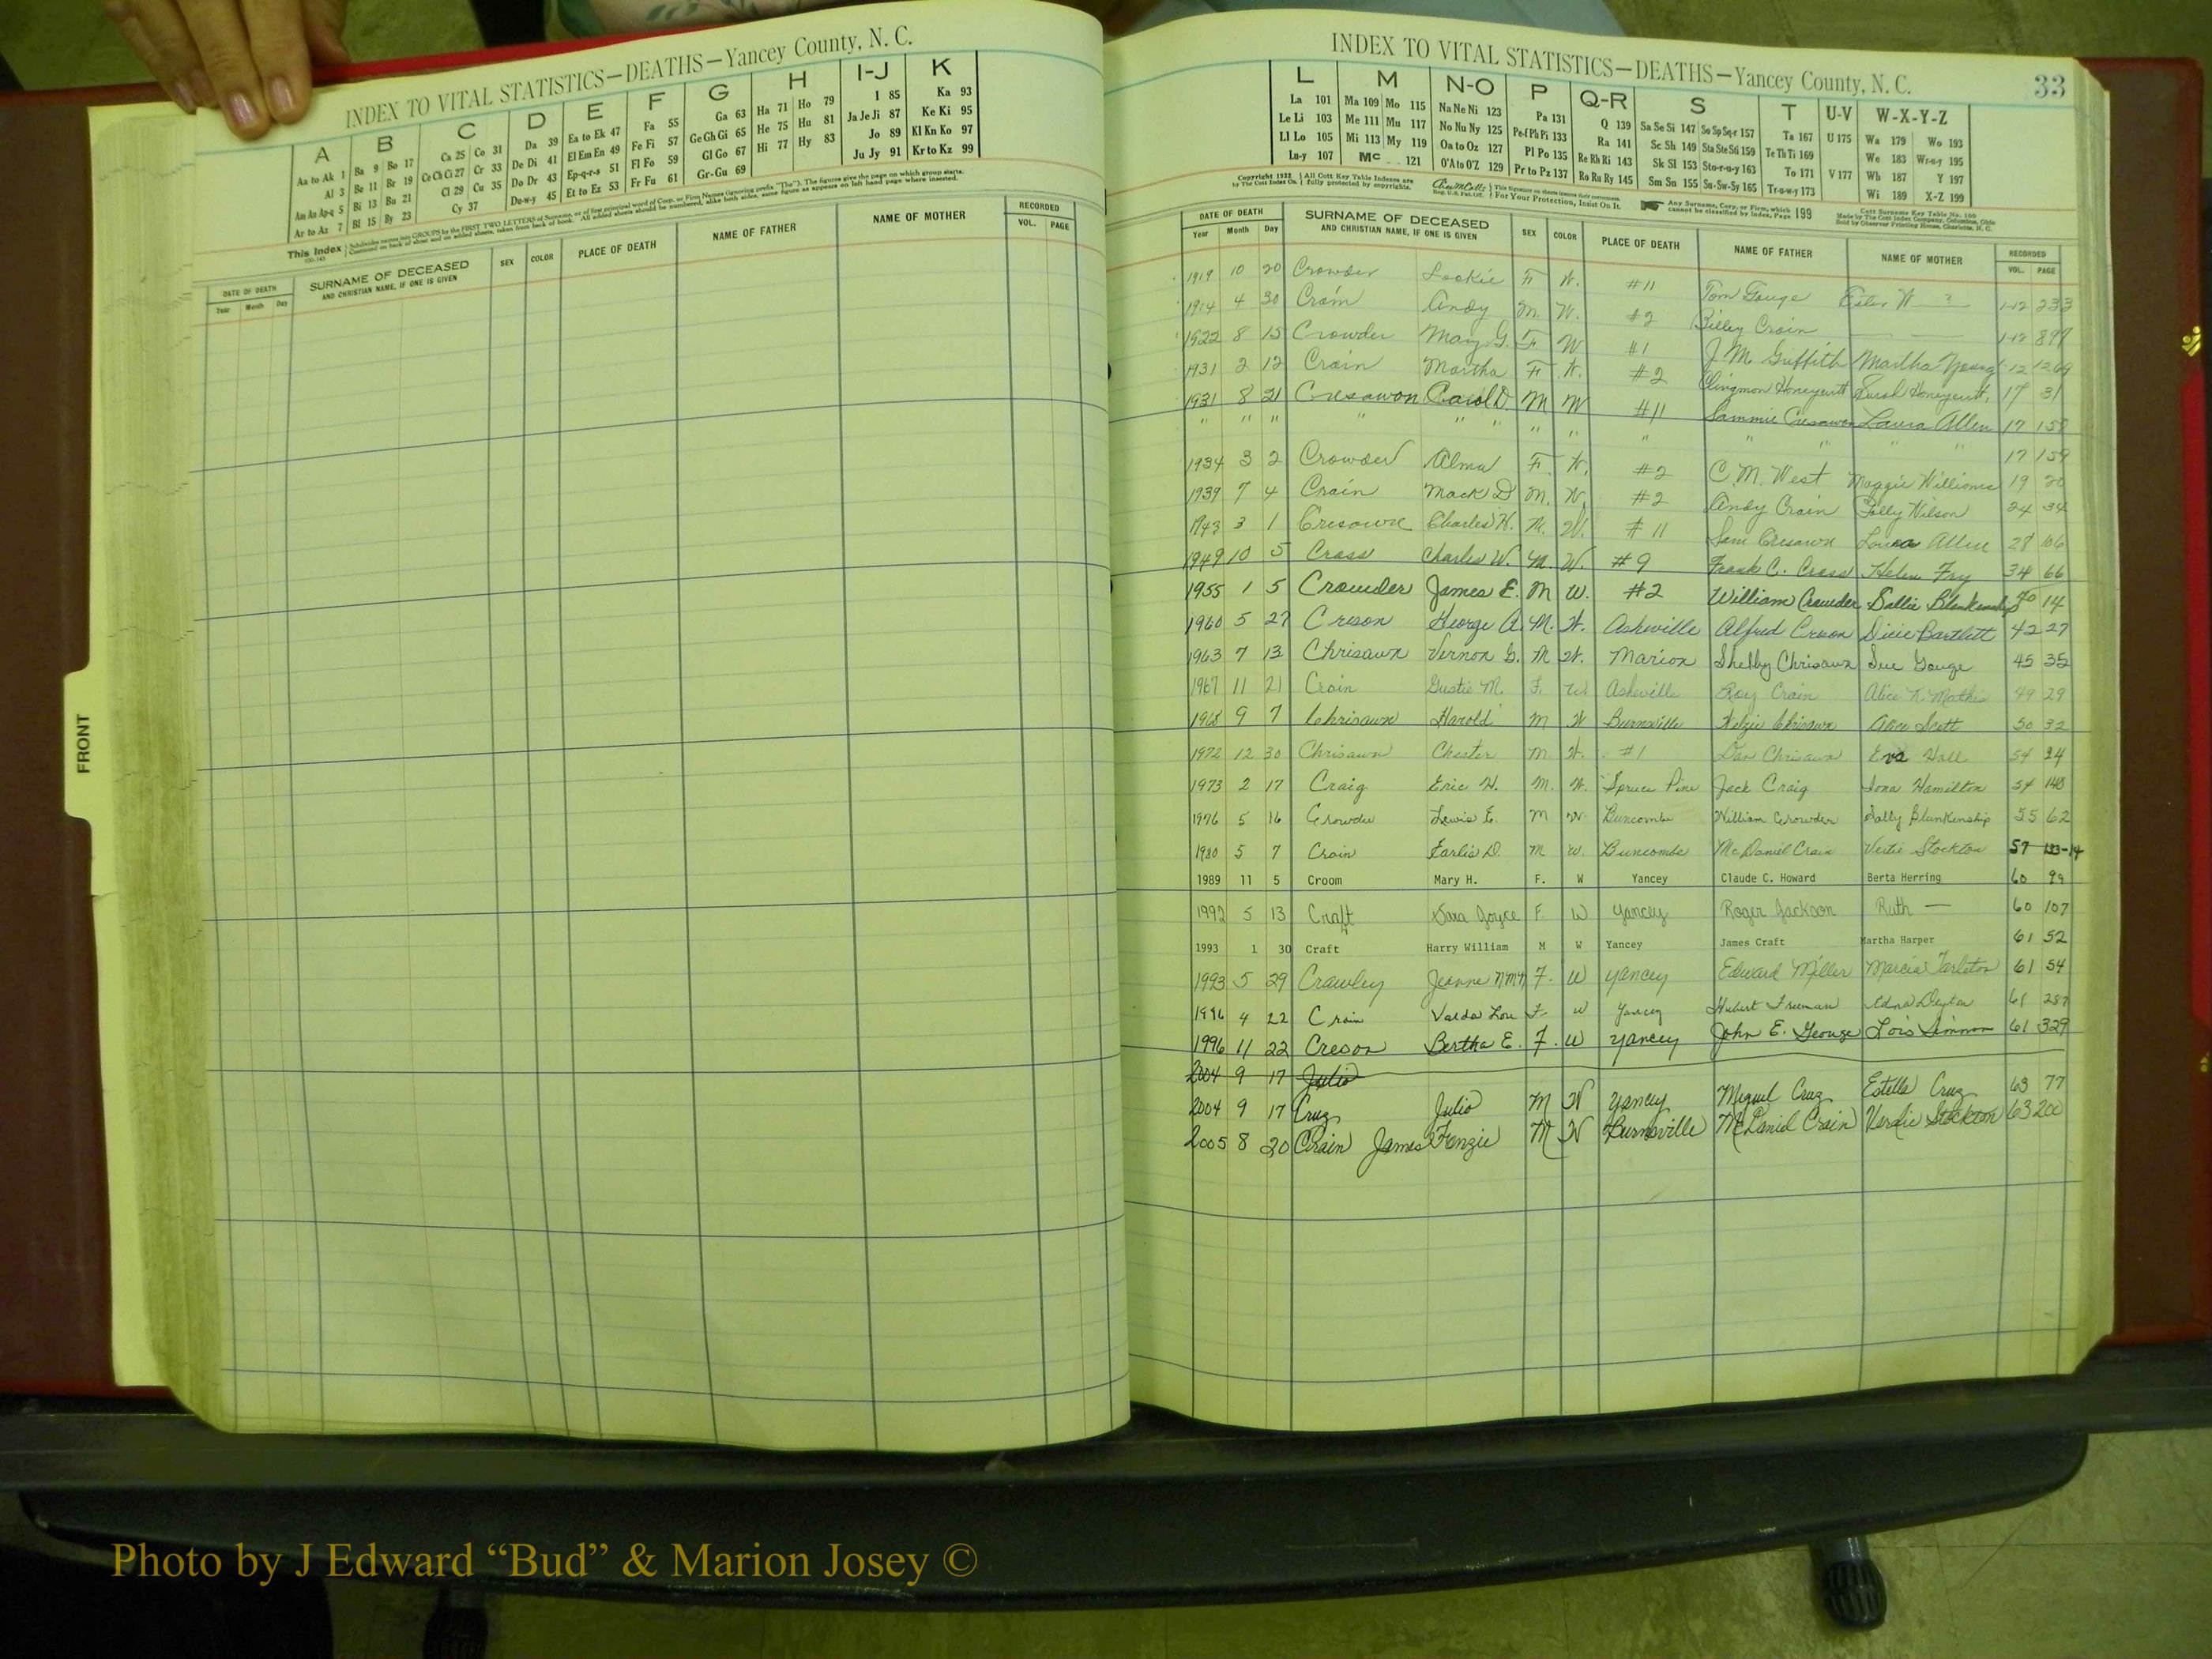 INDEX TO VITAL STATISTICS—DEATHS—Yancey County, N. C.
A B C D E F G H I-J K
Aa to Ak 1 Ba 9 Bo 17 Ca 25 Co 31 Da 39 Ea to Ek 47 Fa 55 Ga 63 Ha 71 Ho 79 I 85 Ka 93
Al 3 Be 11 Br 19 Ce Ch Ci 27 Cr 33 De Di 41 El Em En 49 Fe Fi 57 Ge Gh Gi 65 He 75 Hu 81 Ja Je Ji 87 Ke Ki 95
Am An Ap-q 5 Bi 13 Bu 21 Cl 29 Cu 35 Do Dr 43 Ep-q-r-s 51 Fl Fo 59 Gl Go 67 Hi 77 Hy 83 Jo 89 Kl Kn Ko 97
Ar to Az 7 Bl 15 By 23 Cy 37 Du-w-y 45 Et to Ez 53 Fr Fu 61 Gr-Gu 69 Ju Jy 91 Kr to Kz 99
This Index
DATE OF DEATH SURNAME OF DECEASED SEX COLOR PLACE OF DEATH NAME OF FATHER NAME OF MOTHER RECORDED
Year Month Day AND CHRISTIAN NAME, IF ONE IS GIVEN VOL. PAGE
FRONT
INDEX TO VITAL STATISTICS—DEATHS—Yancey County, N. C. 33
L M N-O P Q-R S T U-V W-X-Y-Z
La 101 Ma 109 Mo 115 Na Ne Ni 123 Pa 131 Q 139 Sa Se Si 147 So Sp Sq-r 157 Ta 167 U 175 Wa 179 Wo 193
Le Li 103 Me 111 Mu 117 No Nu Ny 125 Pe-f Ph Pi 133 Ra 141 Sc Sh 149 Sta Ste Sti 159 Te Th Ti 169 We 183 Wr-u-y 195
Ll Lo 105 Mi 113 My 119 Oa to Oz 127 Pl Po 135 Re Rh Ri 143 Sk Sl 153 Sto-r-u-y 163 To 171 V 177 Wh 187 Y 197
Lu-y 107 Mc 121 O'A to O'Z 129 Pr to Pz 137 Ro Ru Ry 145 Sm Sn 155 Su-Sw-Sy 165 Tr-u-w-y 173 Wi 189 X-Z 199
Copyright 1932 by The Cott Index Co. All Cott Key Table Indexes are fully protected by copyrights. For Your Protection, Insist On It. Any Surname, Corp. or Firm, which cannot be classified by Index, Page 199
DATE OF DEATH SURNAME OF DECEASED SEX COLOR PLACE OF DEATH NAME OF FATHER NAME OF MOTHER RECORDED
Year Month Day AND CHRISTIAN NAME, IF ONE IS GIVEN VOL. PAGE
1919 10 20 Crowder Lookie F W. #11 Tom Gouge Ester W ? 1-12 233
1914 4 30 Crain Andy M. W. #2 Billey Crain 1-12 899
1922 8 15 Crowder Mary G. F W #1 J. M. Griffith Martha Young 12 1269
1931 2 12 Crain Martha F W. #2 Clingmon Honeycutt Sarah Honeycutt 17 31
1931 8 21 Cresawon Carol D. M W #11 Sammie Cresawon Laura Allen 17 158
" " " " " " " " " " " " " 17 159
1934 3 2 Crowder Alma F. W. #2 C. M. West Maggie Williams 19 20
1939 7 4 Crain Mack D M. W. #2 Andy Crain Polly Wilson 24 34
1943 3 1 Cresawn Charles H. M. W. #11 Sam Cresawn Allen 28 106
1949 10 5 Cross Charles W. M. W. #9 Frank C. Cross Helen Fry 34 66
1955 1 5 Crowder James E. M W. #2 William Crowder Sallie Blankenship 40 14
1960 5 27 Creson George A. M. W. Asheville Alfred Creson Dicie Bartlett 42 27
1963 7 13 Chrisawn Vernon G. M W. Marion Shelby Chrisawn Sue Gouge 45 35
1967 11 21 Crain Gustie M. F. W. Asheville Roy Crain Alice N. Mathis 49 29
1968 9 7 Chrisawn Harold M W Burnsville Chrisawn Scott 50 32
1972 12 30 Chrisawn Chester M. W. #1 Dan Chrisawn Eva Hall 54 24
1973 2 17 Craig Eric H. M. W. Spruce Pine Jack Craig Iona Hamilton 54 148
1976 5 16 Crowder Lewis E. M W Buncombe William Crowder Sally Blankenship 55 62
1980 5 7 Crain Earlis D. M W. Buncombe McDaniel Crain Vertie Stockton 57
1989 11 5 Croom Mary H. F. W Yancey Claude C. Howard Berta Herring 60 99
1992 5 13 Craft Sara Joyce F W Yancey Roger Jackson Ruth — 60 107
1993 1 30 Craft Harry William M W Yancey James Craft Martha Harper 61 52
1993 5 29 Crawley Jeanne NMN F. W Yancey Edward Miller Marcia Tarleton 61 54
1996 4 22 Crain Valda Lou F. W Yancey Hubert Freeman Edna Deyton 61 287
1996 11 22 Creson Bertha E. F. W Yancey John E. George Lois Simmon 61 329
2004 9 17 Julio
2004 9 17 Cruz Julio M W Yancey Miguel Cruz Estella Cruz 63 77
2005 8 20 Crain James Fenzie M W Burnsville McDaniel Crain Verdie Stockton 63 200
Photo by J Edward “Bud” & Marion Josey ©